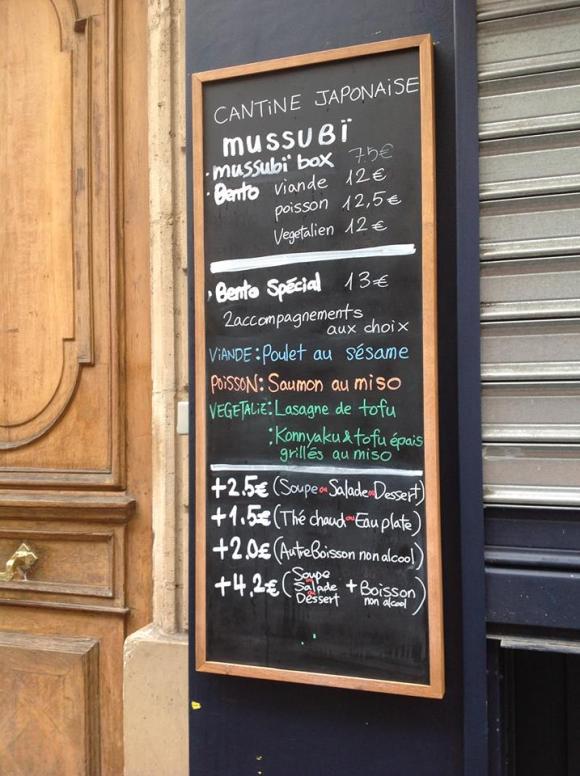 CANTINE JAPONAISE
mussubï
• mussubï box 7.5€
• Bento viande 12€
poisson 12,5€
Vegetalien 12€
• Bento Spécial 13€
2 accompagnements
aux choix
VIANDE: Poulet au sésame
POISSON: Saumon au miso
VEGETALIE: Lasagne de tofu
: Konnyaku & tofu épais
grillés au miso
+2.5€ (Soupe ou Salade ou Dessert)
+1.5€ (Thé chaud ou Eau plate)
+2.0€ (Autre Boisson non alcool)
+4,2€ (Soupe ou Salade ou Dessert + Boisson non alcool)